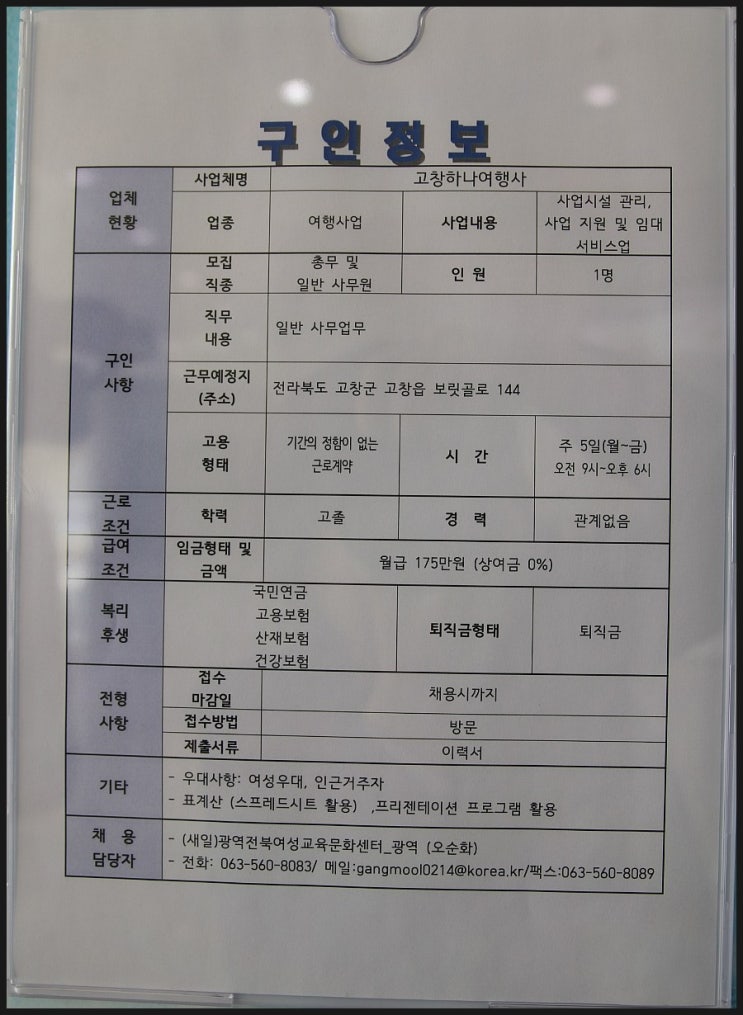 구인정보
업체
현황
사업체명
고창하나여행사
업종
여행사업
사업내용
사업시설 관리,
사업 지원 및 임대
서비스업
구인
사항
모집
직종
총무 및
일반 사무원
인 원
1명
직무
내용
일반 사무업무
근무예정지
(주소)
전라북도 고창군 고창읍 보릿골로 144
고용
형태
기간의 정함이 없는
근로계약
시 간
주 5일(월~금)
오전 9시~오후 6시
근로
조건
학력
고졸
경 력
관계없음
급여
조건
임금형태 및
금액
월급 175만원 (상여금 0%)
복리
후생
국민연금
고용보험
산재보험
건강보험
퇴직금형태
퇴직금
전형
사항
접수
마감일
채용시까지
접수방법
방문
제출서류
이력서
기타
- 우대사항: 여성우대, 인근거주자
- 표계산 (스프레드시트 활용) ,프리젠테이션 프로그램 활용
채 용
담당자
- (새일)광역전북여성교육문화센터_광역 (오순화)
- 전화: 063-560-8083/ 메일:gangmool0214@korea.kr/팩스:063-560-8089